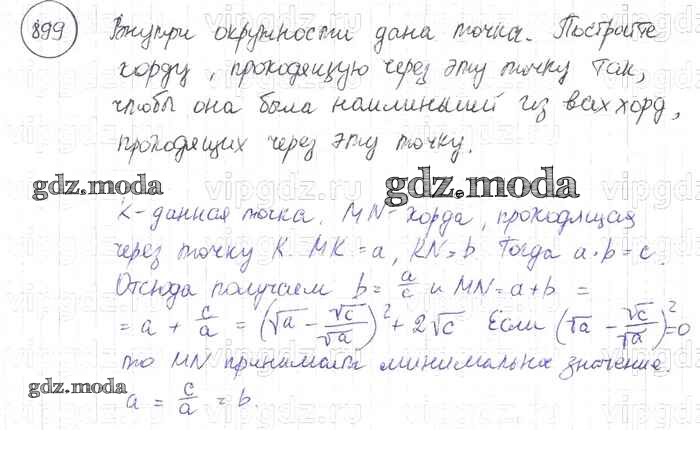 899 Внутри окружности дана точка. Постройте
хорду, проходящую через эту точку так,
чтобы она была наименьшей из всех хорд,
проходящих через эту точку.
gdz.moda gdz.moda
K - данная точка. MN - хорда, проходящая
через точку K. MK = a, KN = b. Тогда a·b = c.
Отсюда получаем b = a/c и MN = a + b =
= a + c/a = (√a − √c/√a)² + 2√c Если (√a − √c/√a)² = 0
то MN принимает минимальное значение.
gdz.moda
a = c/a = b.